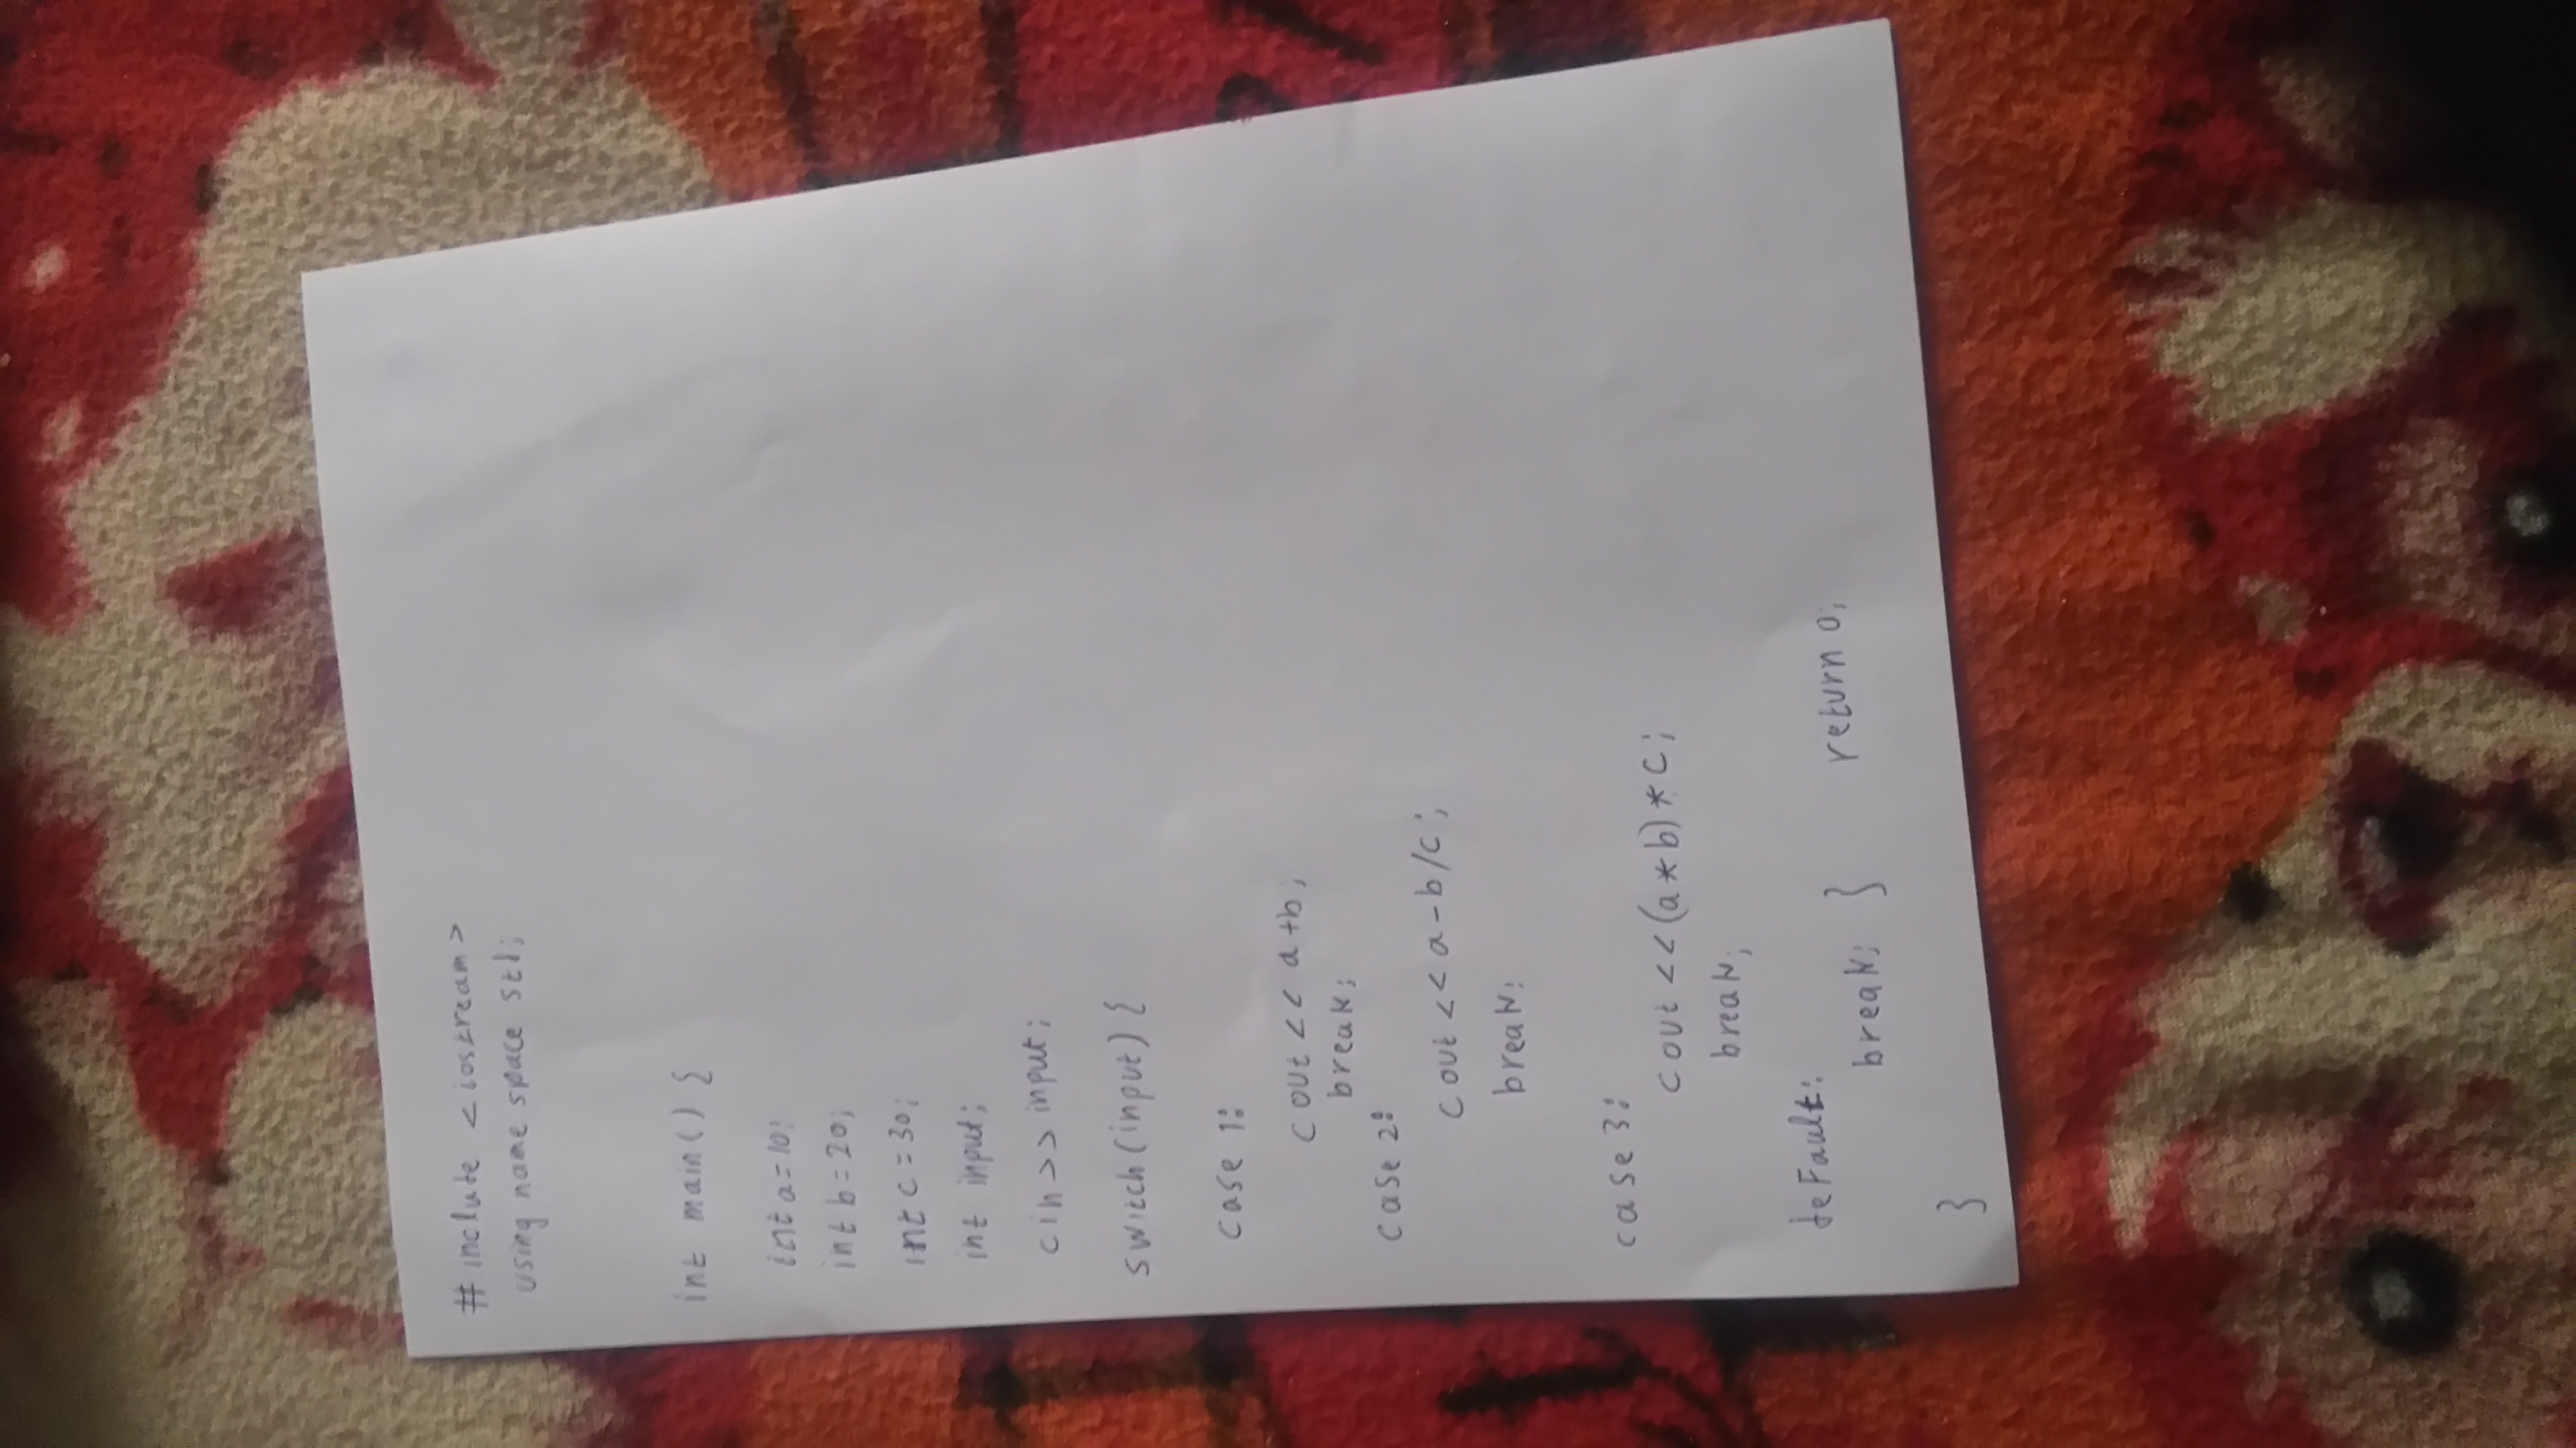 #include <iostream>
using name space std;
int main() {
int a=10;
int b=20;
int c=30;
int input;
cin>>input;
switch(input) {
case 1:
cout<< a+b;
break;
case 2:
cout<<a-b/c;
break;
case 3:
cout<<(a*b)*c;
break;
deFault:
break; } return 0;
}